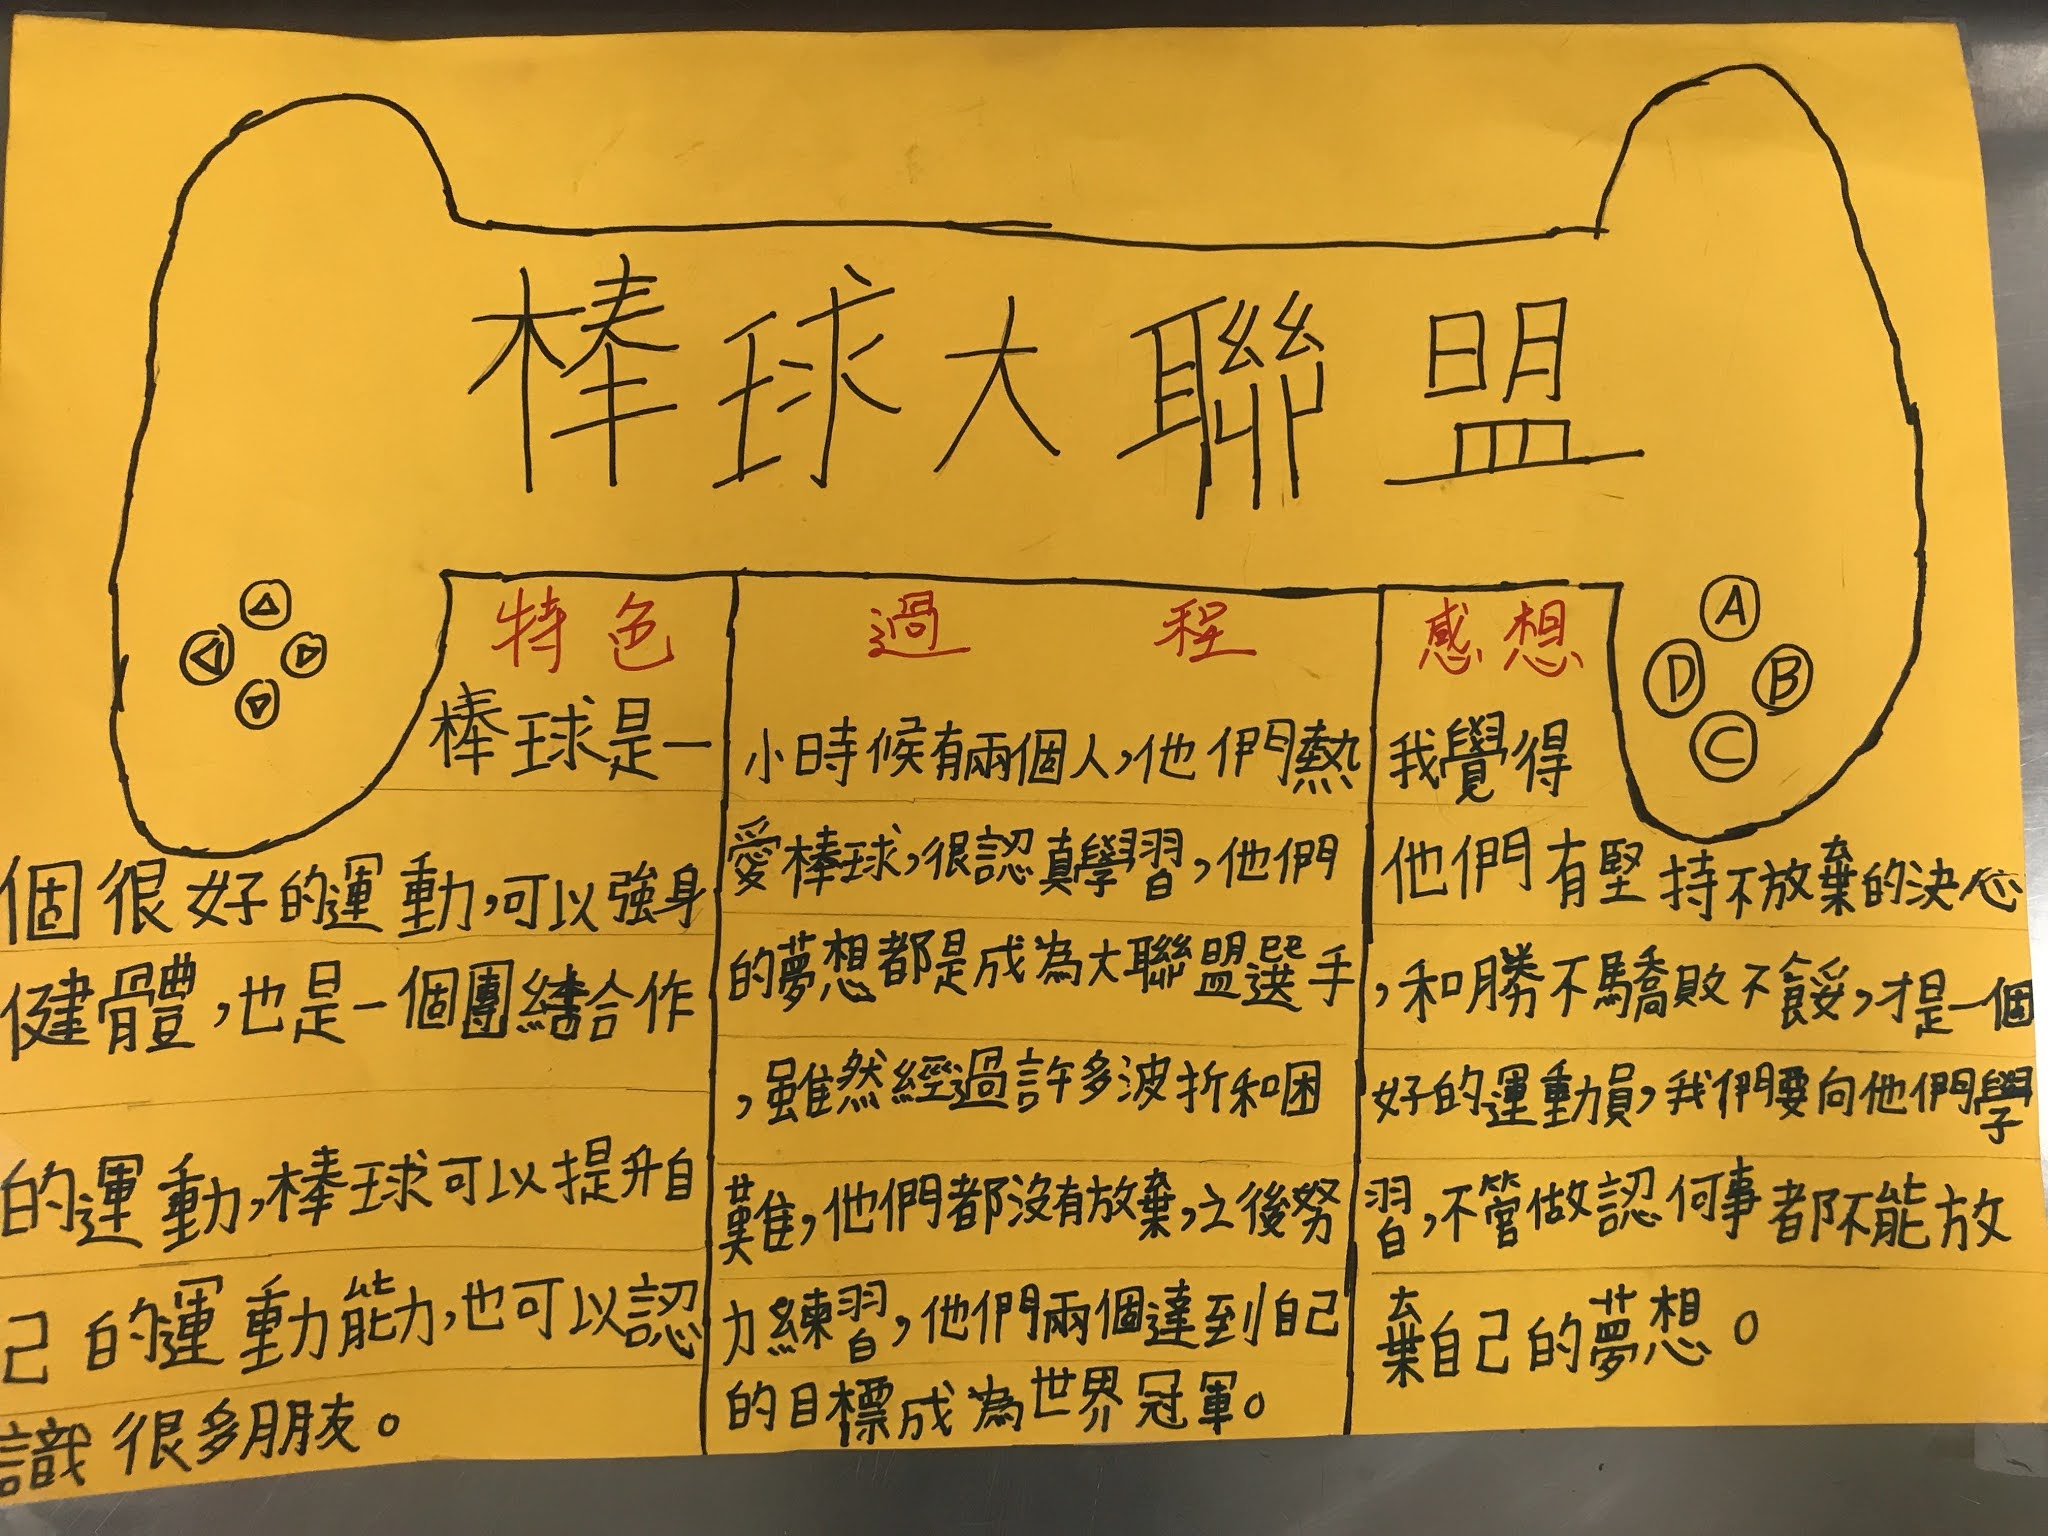 棒球大聯盟
A
D B
C
特色
棒球是一
個很好的運動,可以強身
健體,也是一個團結合作
的運動,棒球可以提升自
己的運動能力,也可以認
識很多朋友。
過程
小時候有兩個人,他們熱
愛棒球,很認真學習,他們
的夢想都是成為大聯盟選手
,雖然經過許多波折和困
難,他們都沒有放棄,之後努
力練習,他們兩個達到自己
的目標成為世界冠軍。
感想
我覺得
他們有堅持不放棄的決心
,和勝不驕敗不餒,才是一個
好的運動員,我們要向他們學
習,不管做認何事都不能放
棄自己的夢想。